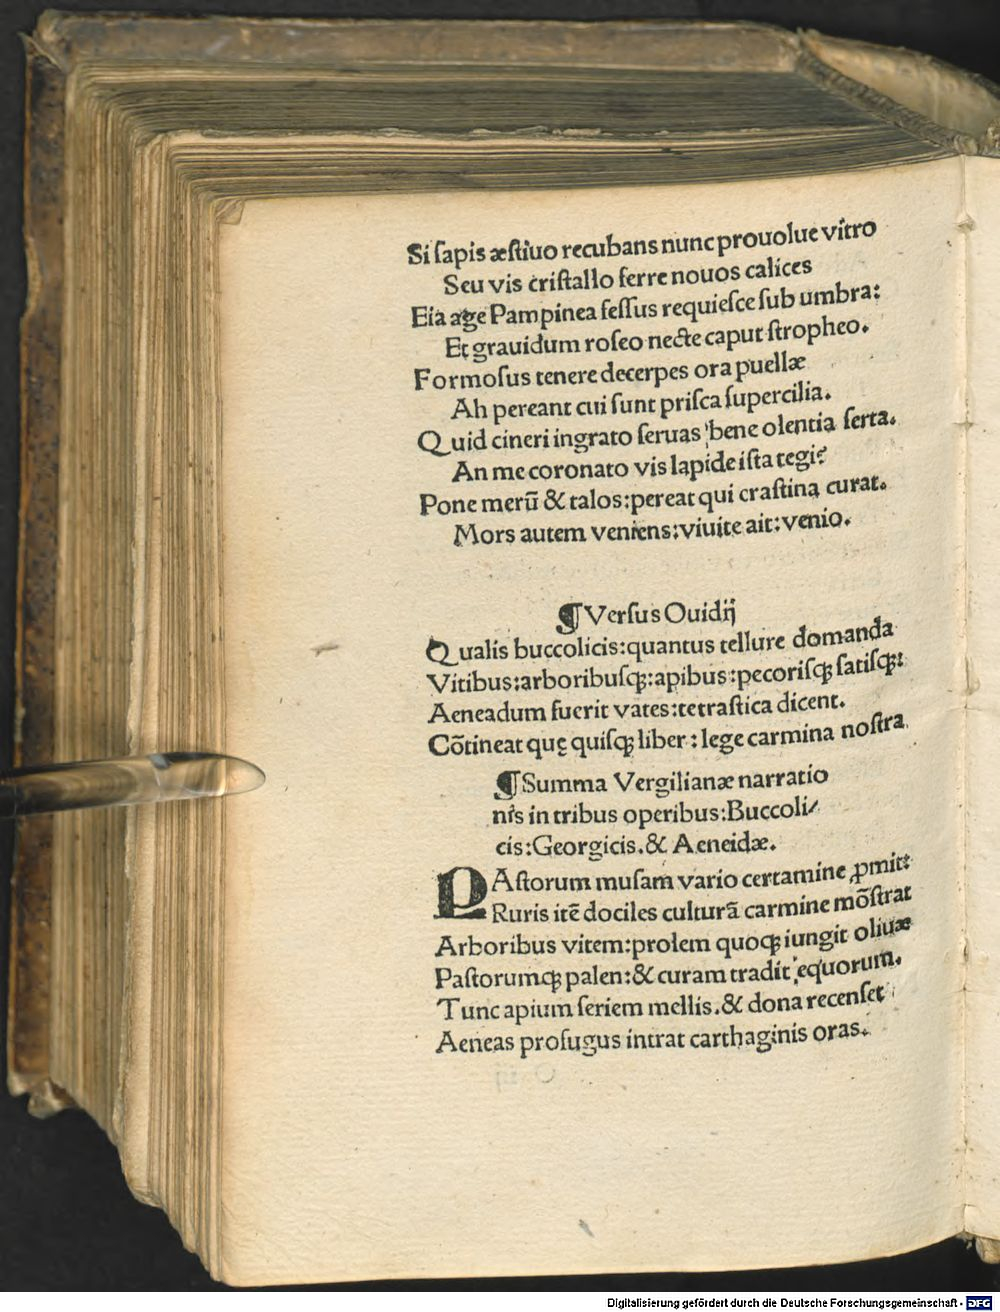 Si ſapis æſtiuo recubans nunc prouolue vitro
Seu vis criſtallo ferre nouos calices
Eia age Pampinea feſſus requieſce ſub umbra:
Et grauidum roſeo necte caput ſtropheo.
Formoſus tenere decerpes ora puellæ
Ah pereant cui ſunt priſca ſupercilia.
Quid cineri ingrato ſeruas bene olentia ſerta.
An me coronato vis lapide iſta tegi?
Pone merū & talos: pereat qui craſtina curat.
Mors autem veniens: viuite ait: venio.
¶ Verſus Ouidij
Qualis buccolicis: quantus tellure domanda
Vitibus: arboribuſꝗ: apibus: pecoriſꝗ ſatiſꝗ:
Aeneadum fuerit vates: tetraſtica dicent.
Cōtineat quę quiſꝗ liber: lege carmina noſtra
¶ Summa Vergilianæ narratio
nis in tribus operibus: Buccoli⸗
cis: Georgicis. & Aeneidæ.
PAſtorum muſam vario certamine ꝓmit:
Ruris itē dociles culturā carmine mōſtrat
Arboribus vitem: prolem quoꝗ iungit oliuæ
Paſtorumꝗ palen: & curam tradit equorum.
Tunc apium ſeriem mellis. & dona recenſet
Aeneas profugus intrat carthaginis oras.
Digitalisierung gefördert durch die Deutsche Forschungsgemeinschaft - DFG